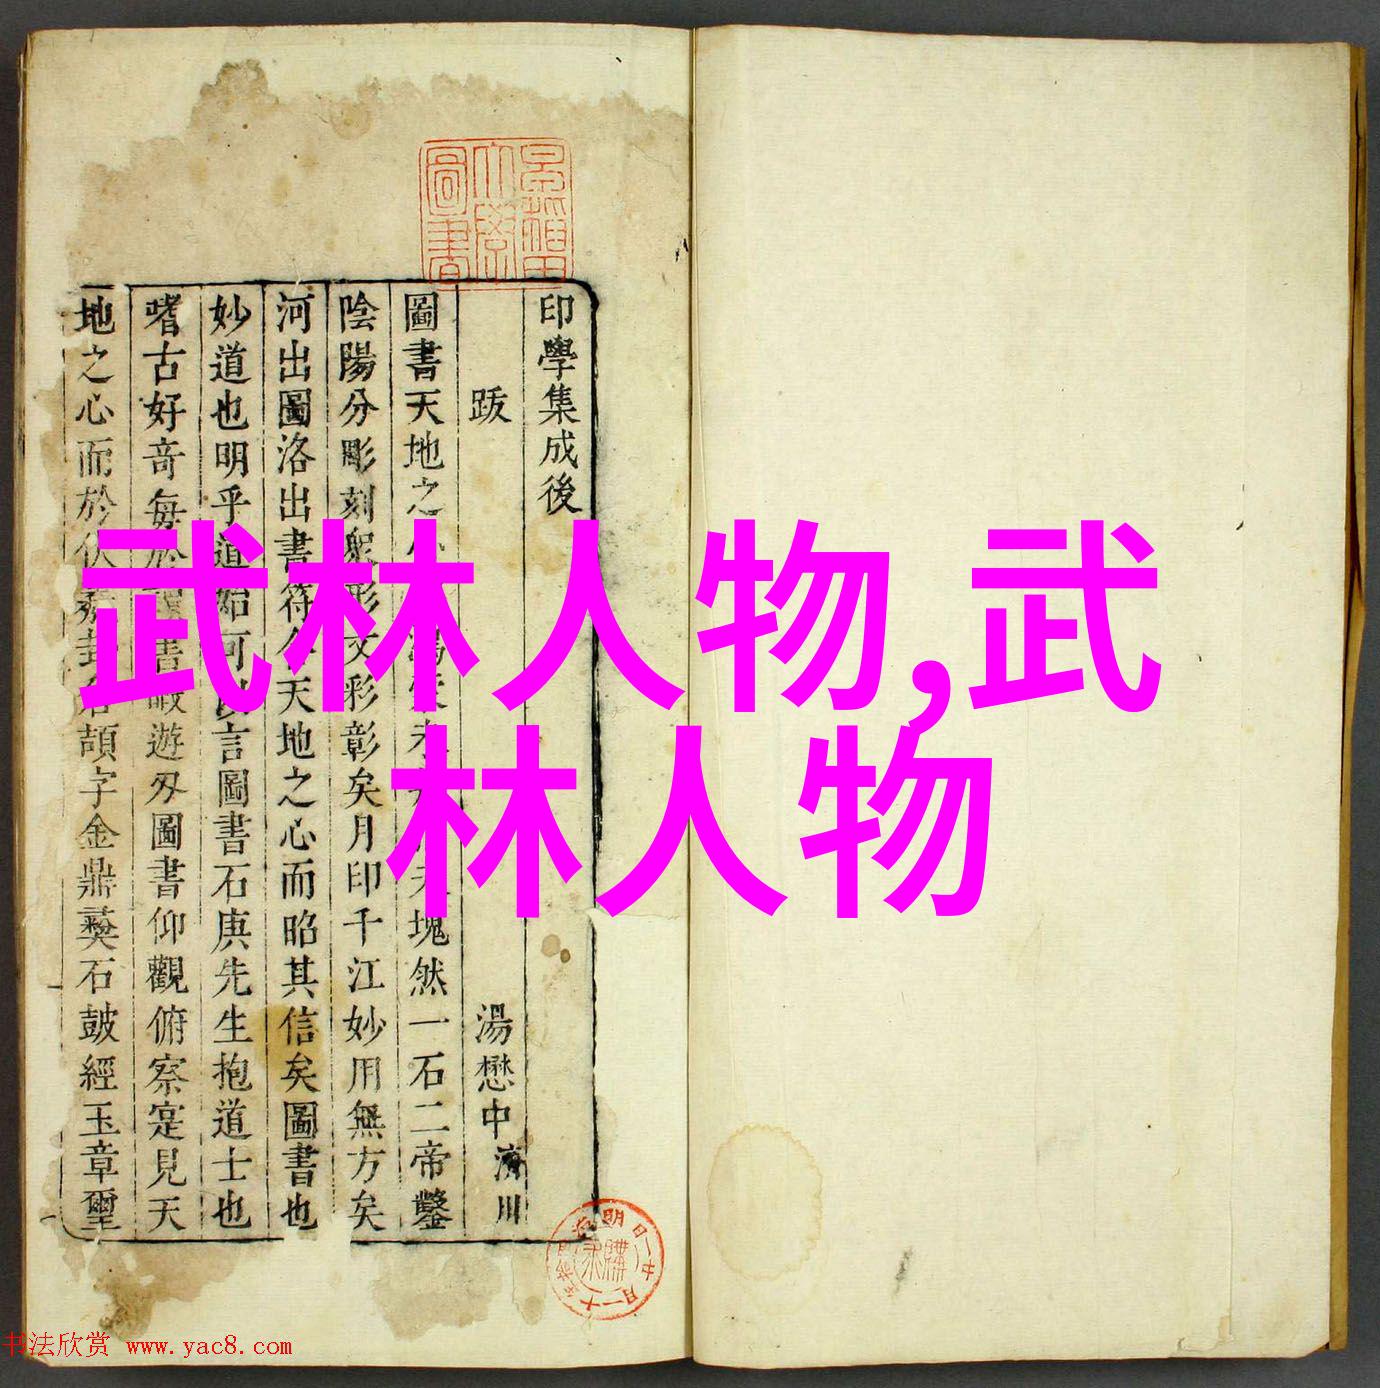 武林人物,武
林人物
印學集成後
跋
湯懋中濟川
圖書天地之心
塊然一石二帝鑿
陰陽分彫刻眾形文彩彰矣月印千江妙用無方矣
河出圖洛出書符合天地之心而昭其信矣圖書也
妙道也明乎道始可
言圖書石庚先生抱道士也
嗜古好奇每於
書
遊刃圖書仰觀俯察寔見天
地之心而於伏
頡字金鼎彝石鼓經玉章璽
書法欣赏 www.yac8.com